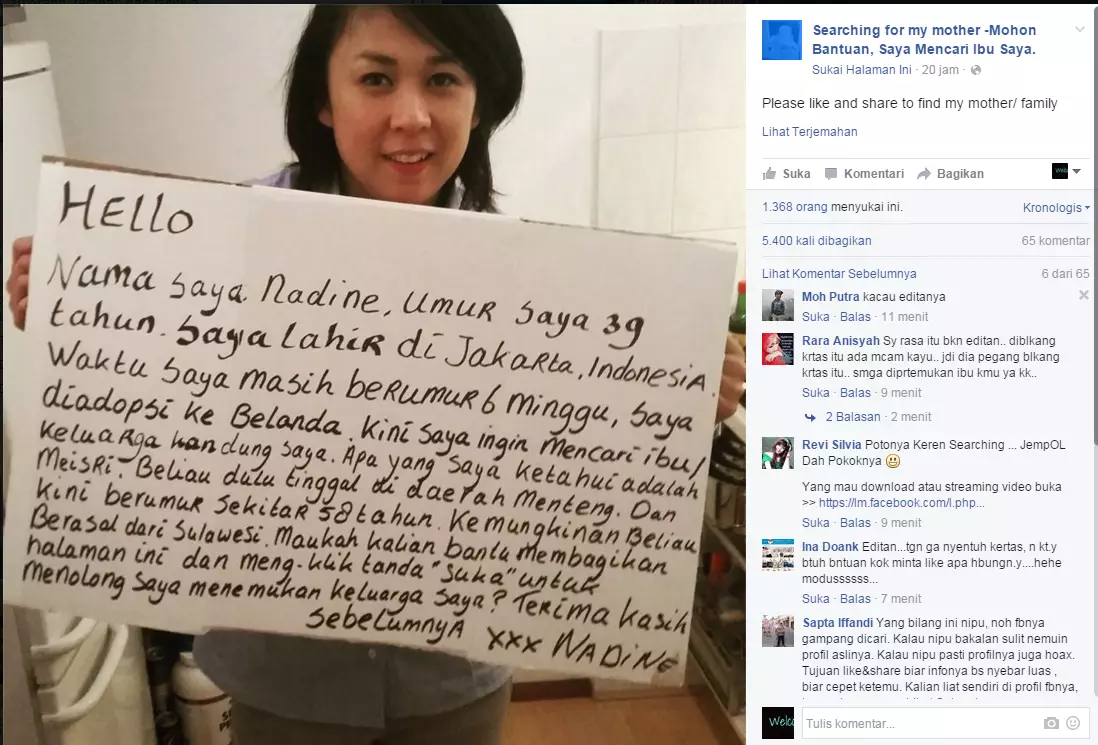 HELLO
Nama saya. Nadine, Umur saya 39
tahun. Saya Lahir di Jakarta, Indonesia.
Waktu saya masih berumur 6 minggu, saya
diadopsi ke Belanda. Kini saya ingin mencari ibu/
keluarga kandung saya. Apa yang saya ketahui adalah
Meisri. Beliau dulu tinggal di daerah Menteng. Dan
kini berumur sekitar 58 tahun. Kemungkinan Beliau
Berasal dari Sulawesi. Maukah kalian bantu membagikan
halaman ini dan meng-klik tanda "suka" untuk
menolong saya menemukan keluarga saya? Terima kasih
sebelumnya xxx NADINE
Searching for my mother -Mohon
Bantuan, Saya Mencari Ibu Saya.
Sukai Halaman Ini · 20 jam ·
Please like and share to find my mother/ family
Lihat Terjemahan
Suka Komentari Bagikan
1.368 orang menyukai ini. Kronologis
5.400 kali dibagikan 65 komentar
Lihat Komentar Sebelumnya 6 dari 65
Moh Putra kacau editanya
Suka · Balas · 11 menit
Rara Anisyah Sy rasa itu bkn editan.. diblkang
krtas itu ada mcam kayu.. jdi dia pegang blkang
krtas itu.. smga diprtemukan ibu kmu ya kk..
Suka · Balas · 9 menit
2 Balasan · 2 menit
Revi Silvia Potonya Keren Searching ... JempOL
Dah Pokoknya
Yang mau download atau streaming video buka
>> https://lm.facebook.com/l.php...
Suka · Balas · 9 menit
Ina Doank Editan...tgn ga nyentuh kertas, n kt.y
btuh bntuan kok minta like apa hbungn.y....hehe
modussssss...
Suka · Balas · 7 menit
Sapta Iffandi Yang bilang ini nipu, noh fbnya
gampang dicari. Kalau nipu bakalan sulit nemuin
profil aslinya. Kalau nipu pasti profilnya juga hoax.
Tujuan like&share biar infonya bs nyebar luas ,
biar cepet ketemu. Kalian liat sendiri di profil fbnya,
Welc
Tulis komentar...